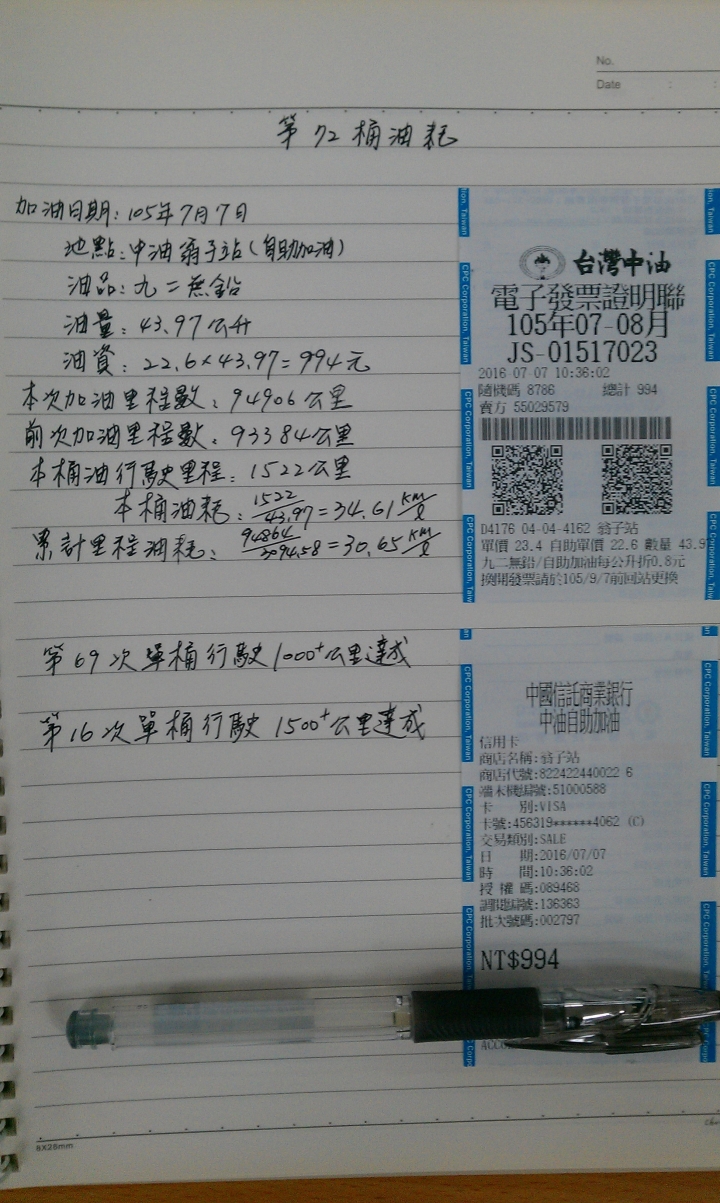 No.
Date : :
第72桶油耗
加油日期：105年7月7日
地點：中油翁子站（自助加油）
油品：九二無鉛
油量：43.97公升
油資：22.6×43.97=994元
本次加油里程數：94906公里
前次加油里程數：93384公里
本桶油行駛里程：1522公里
本桶油耗：1522/43.97=34.61 KM/ℓ
累計里程油耗：94864/3094.58=30.65 KM/ℓ
第69次單桶行駛1000⁺公里達成
第16次單桶行駛1500⁺公里達成
台灣中油
電子發票證明聯
105年07-08月
JS-01517023
2016-07-07 10:36:02
隨機碼 8786 總計 994
賣方 55029579
D4176 04-04-4162 翁子站
單價 23.4 自助單價 22.6 數量 43.9
九二無鉛/自助加油每公升折0.8元
換開發票請於105/9/7前回站更換
CPC Corporation, Taiwan
中國信託商業銀行
中油自助加油
信用卡
商店名稱:翁子站
商店代號:822422440022 6
端末機編號:51000588
卡 別:VISA
卡號:456319******4062 (C)
交易類別:SALE
日 期:2016/07/07
時 間:10:36:02
授 權 碼:089468
調閱編號:136363
批次號碼:002797
NT$994
8X26mm